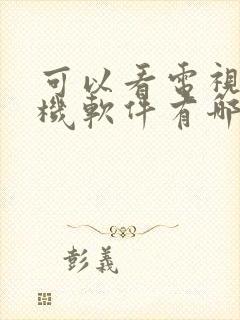 可以看電視
機軟件有哪
彭義